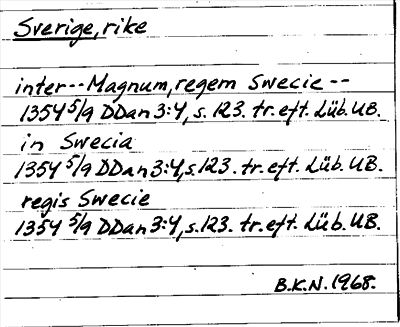 Sverige, rike
inter--Magnum, regem Swecie--
1354 5/9 DDan 3:4, s. 123. tr. eft. Lüb. UB.
in Swecia
1354 5/9 DDan 3:4, s. 123. tr. eft. Lüb. UB.
regis Swecie
1354 5/9 DDan 3:4, s. 123. tr. eft. Lüb. UB.
B.K.N. 1968.